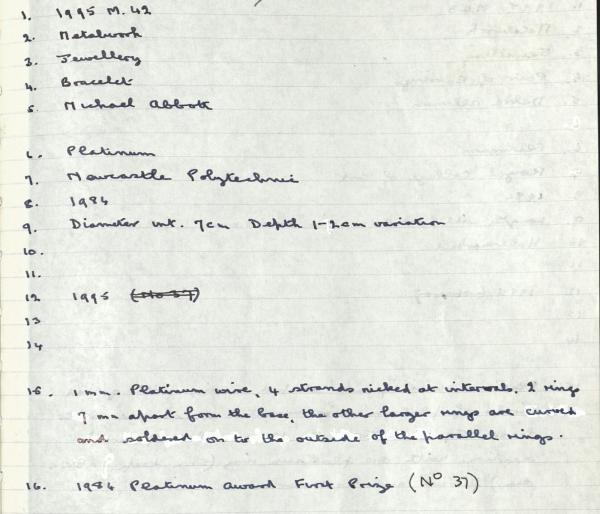 1. 1995 M. 42
2. Metalwork
3. Jewellery
4. Bracelet
5. Michael Abbott
6. Platinum
7. Newcastle Polytechnic
8. 1984
9. Diameter int. 7cm Depth 1-2cm variation
10.
11.
12 1995 (No 37)
13
14
15. 1 mm. Platinum wire, 4 strands nicked at intervals. 2 rings
7 mm apart form the base, the other larger rings are curved
and soldered on to the outside of the parallel rings.
16. 1984 Platinum award First Prize (No 37)